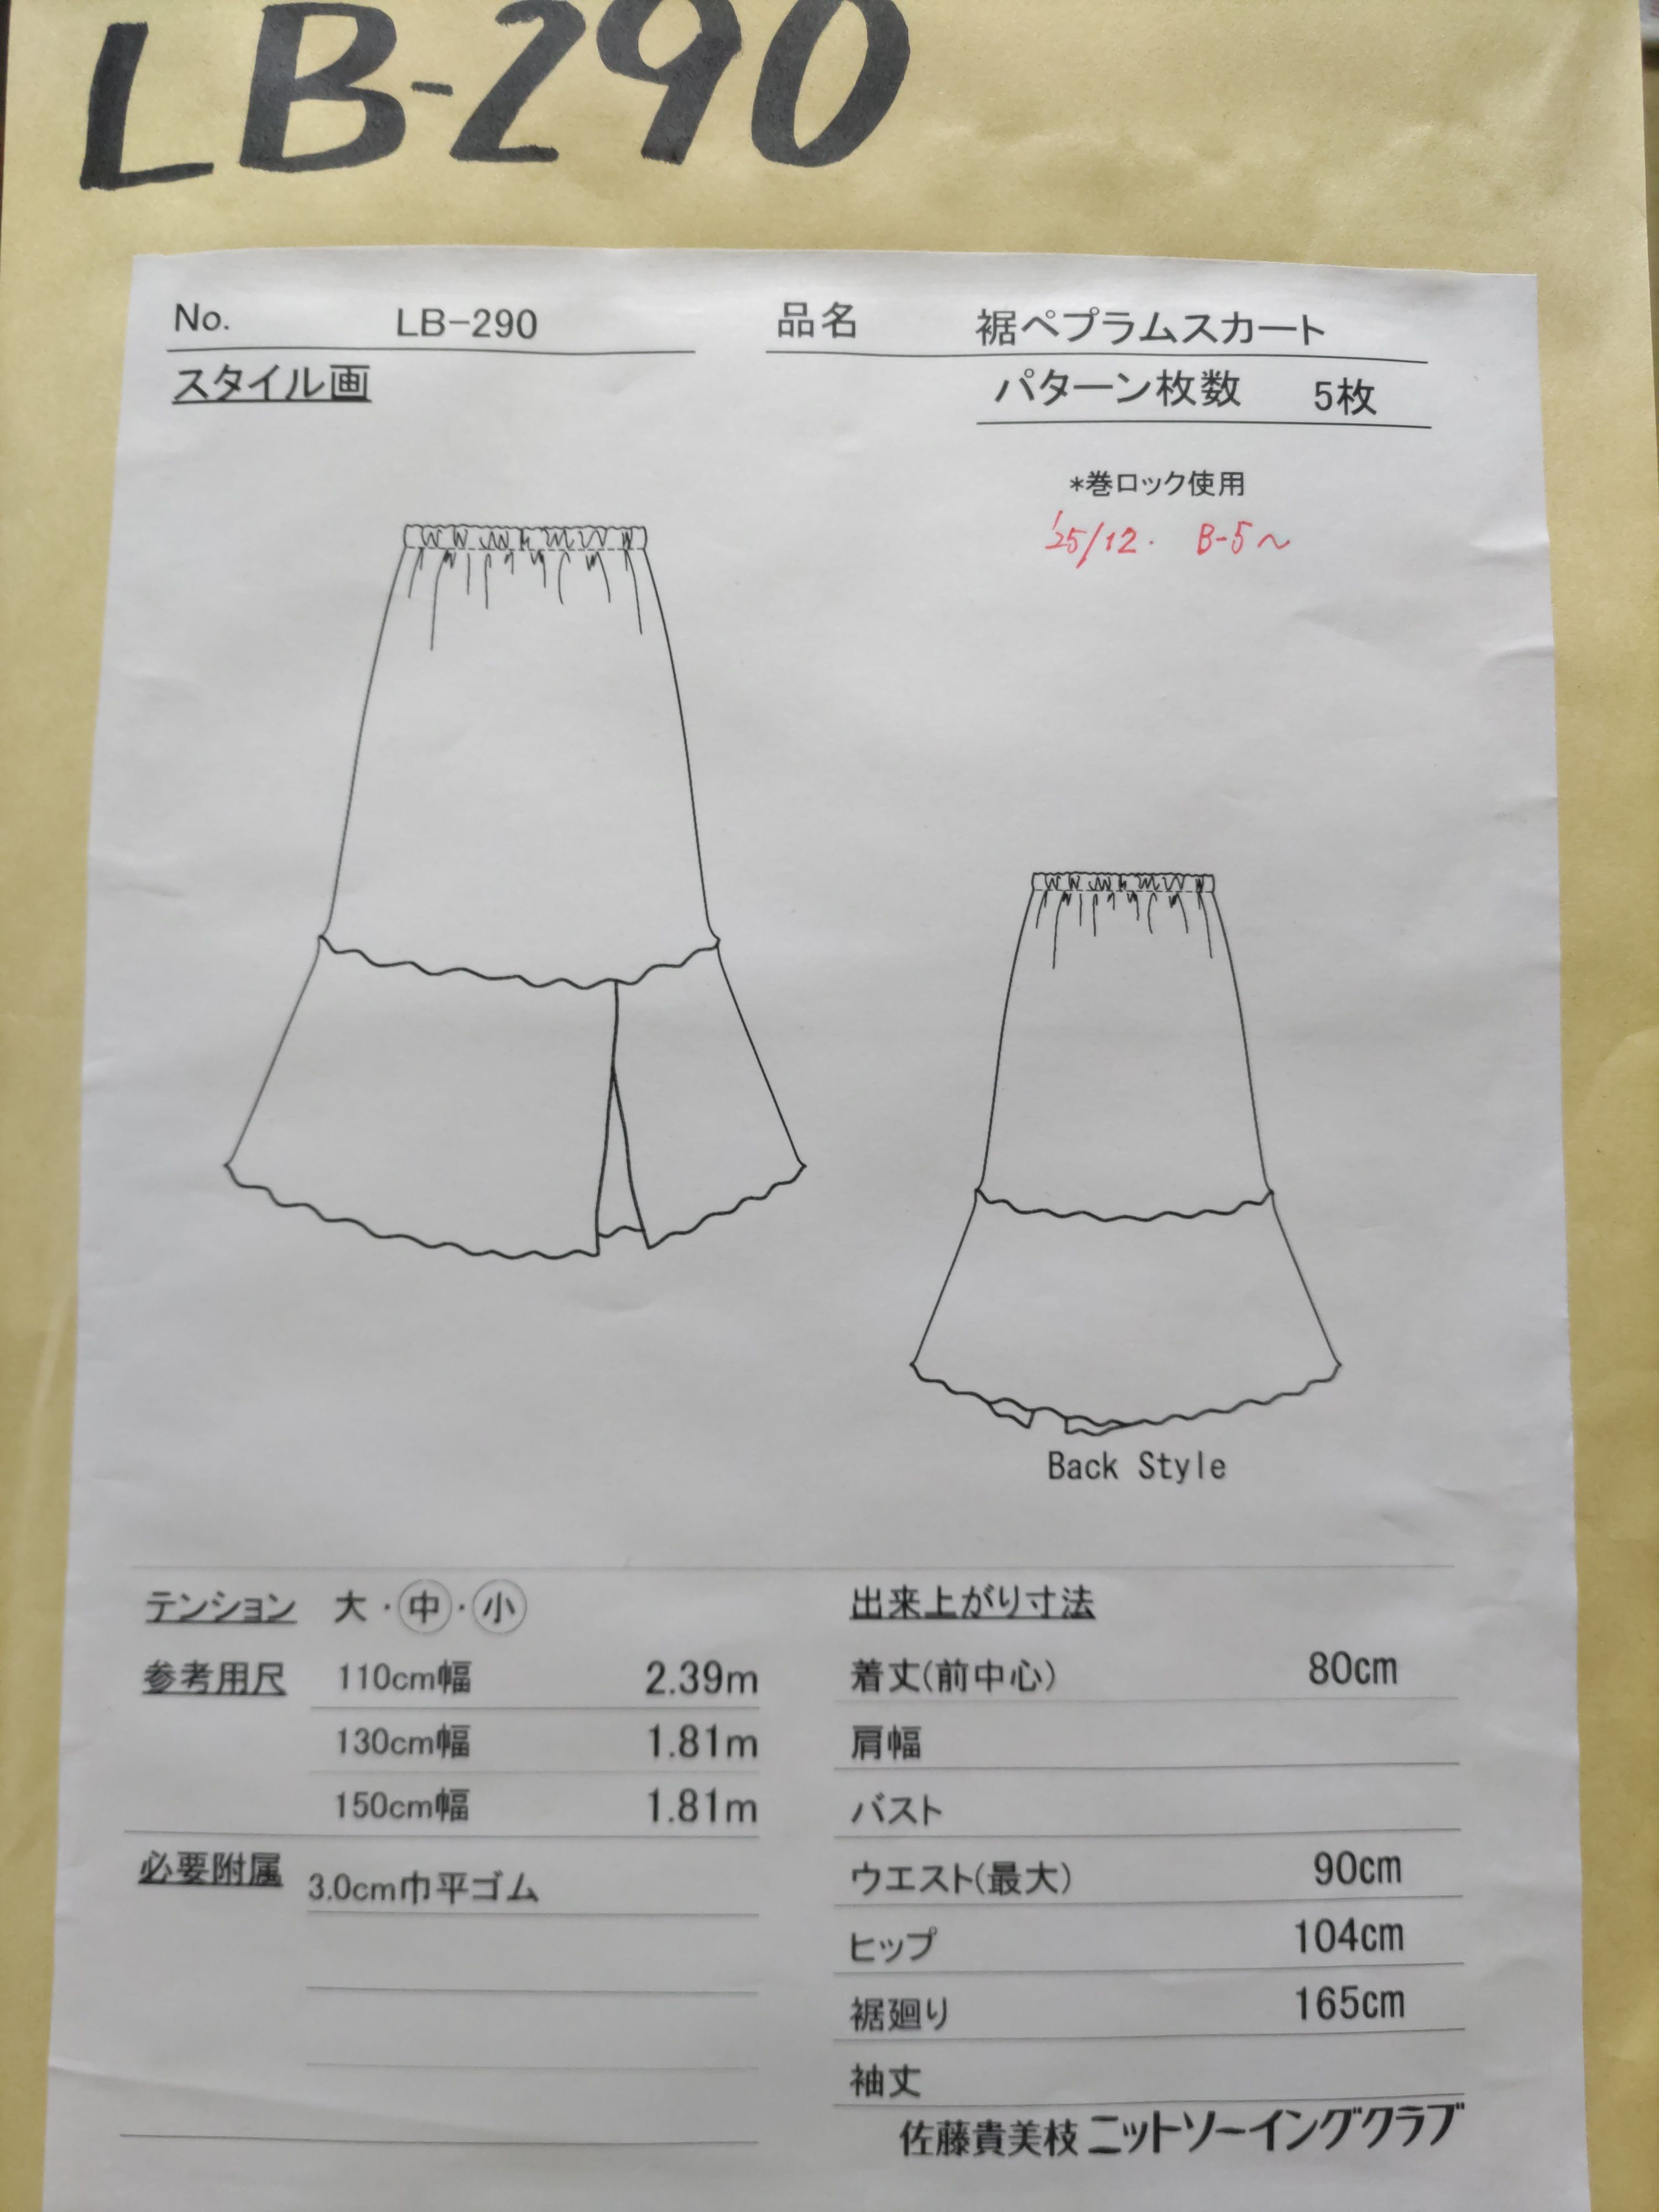 LB-290
No. LB-290 品名 裾ペプラムスカート
スタイル画 パターン枚数 5枚
*巻ロック使用
'25/12. B-5~
Back Style
テンション 大・中・小 出来上がり寸法
参考用尺 110cm幅 2.39m 着丈(前中心) 80cm
130cm幅 1.81m 肩幅
150cm幅 1.81m バスト
必要附属 3.0cm巾平ゴム ウエスト(最大) 90cm
ヒップ 104cm
裾廻り 165cm
袖丈
佐藤貴美枝ニットソーイングクラブ